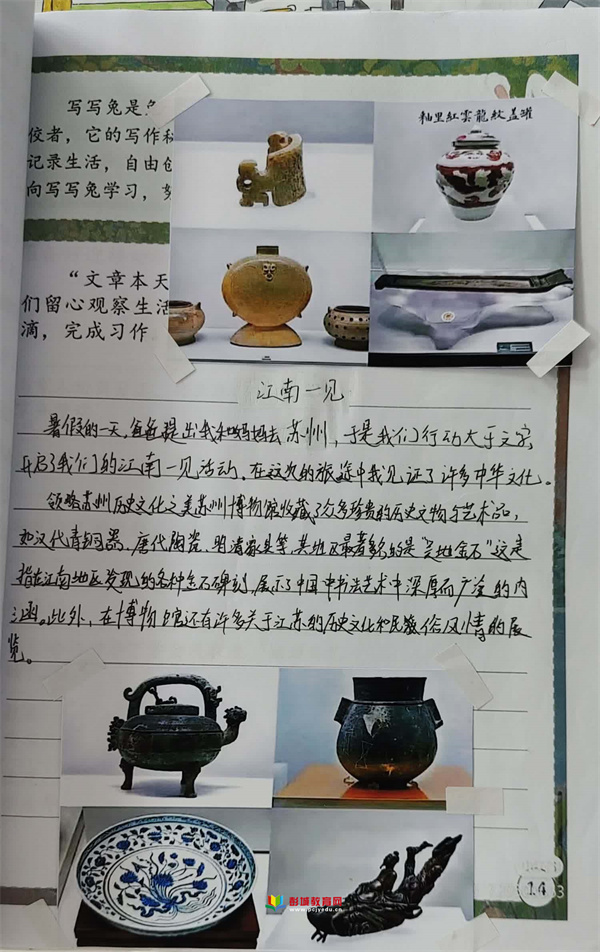 写写兔是
佼者，它的写作秘
记录生活，自由创
向写写兔学习，努
釉里紅雲龍紋蓋罐
“文章本天
们留心观察生活
滴，完成习作
江南一见
暑假的一天，爸爸提出我和妈妈去苏州，于是我们行动大于文字
开启了我们的江南一见活动。在这次的旅途中我见证了许多中华文化。
领略苏州历史文化之美苏州博物馆收藏了众多珍贵的历史文物与艺术品，
如汉代青铜器、唐代陶瓷、明清家具等，其中最著名的是“吴地金石”这是
指在江南地区发现的各种金石碑刻，展示了中国中书法艺术中深厚而广泛的内
涵。此外，在博物馆还有许多关于江苏的历史文化和民俗风情的展
览。
彭城教育网
www.pcjyedu.cn
14